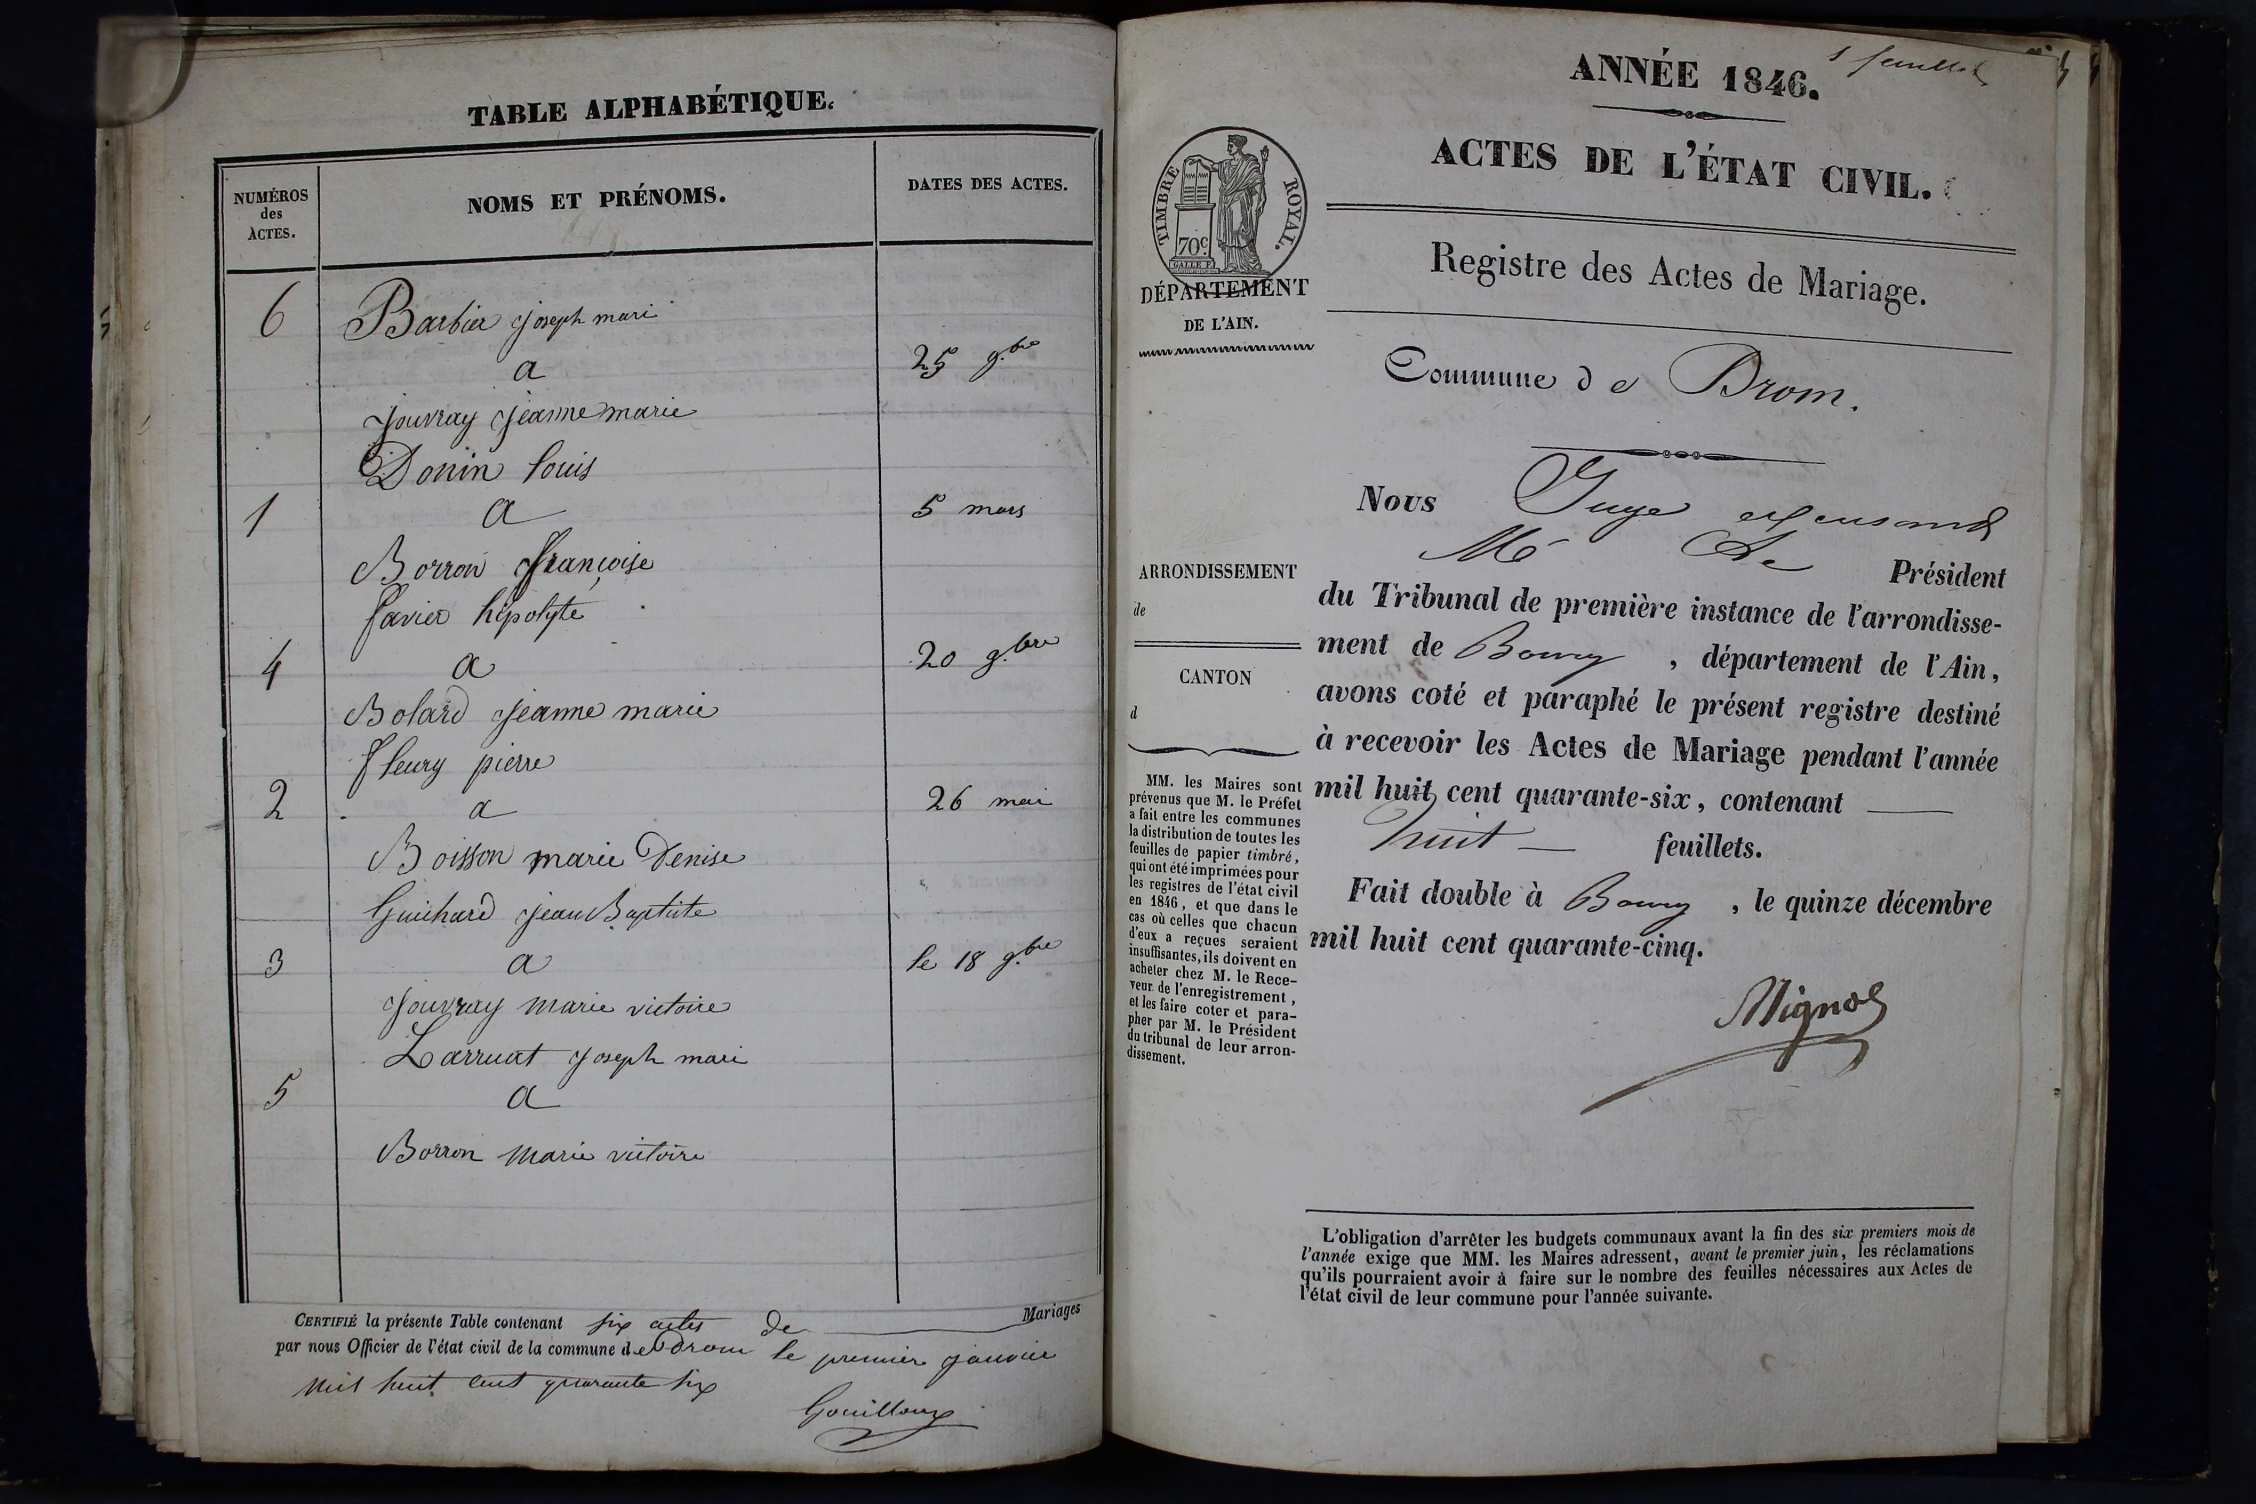 TABLE ALPHABÉTIQUE.
NUMÉROS
des
ACTES.
NOMS ET PRÉNOMS.
DATES DES ACTES.
6 Barbier joseph mari
a 25 9.bre
jouvray jeanne marie
Donin louis
1 a 5 mars
Borron françoise
favier hipolyte
4 a 20 9.bre
Bolard jeanne marie
fleury pierre
2 a 26 mai
Boisson marie Denise
Guichard jean Baptiste
3 a le 18 9.bre
jouvray marie victoire
Larruat joseph mari
5 a
Borron marie victoire
CERTIFIÉ la présente Table contenant six actes de Mariages
par nous Officier de l'état civil de la commune de Drom le premier janvier
mil huit cent quarante six
Gouilloux
1 feuillet
ANNÉE 1846.
ACTES DE L'ÉTAT CIVIL.
TIMBRE ROYAL.
70c
GALLE F.
DÉPARTEMENT
DE L'AIN.
Registre des Actes de Mariage.
Commune de Drom.
Nous Juge
Président
du Tribunal de première instance de l'arrondisse-
ment de Bourg , département de l'Ain,
avons coté et paraphé le présent registre destiné
à recevoir les Actes de Mariage pendant l'année
mil huit cent quarante-six, contenant
huit feuillets.
Fait double à Bourg , le quinze décembre
mil huit cent quarante-cinq.
ARRONDISSEMENT
de
CANTON
d
MM. les Maires sont
prévenus que M. le Préfet
a fait entre les communes
la distribution de toutes les
feuilles de papier timbré,
qui ont été imprimées pour
les registres de l'état civil
en 1846, et que dans le
cas où celles que chacun
d'eux a reçues seraient
insuffisantes, ils doivent en
acheter chez M. le Rece-
veur de l'enregistrement,
et les faire coter et para-
pher par M. le Président
du tribunal de leur arron-
dissement.
L'obligation d'arrêter les budgets communaux avant la fin des six premiers mois de
l'année exige que MM. les Maires adressent, avant le premier juin, les réclamations
qu'ils pourraient avoir à faire sur le nombre des feuilles nécessaires aux Actes de
l'état civil de leur commune pour l'année suivante.